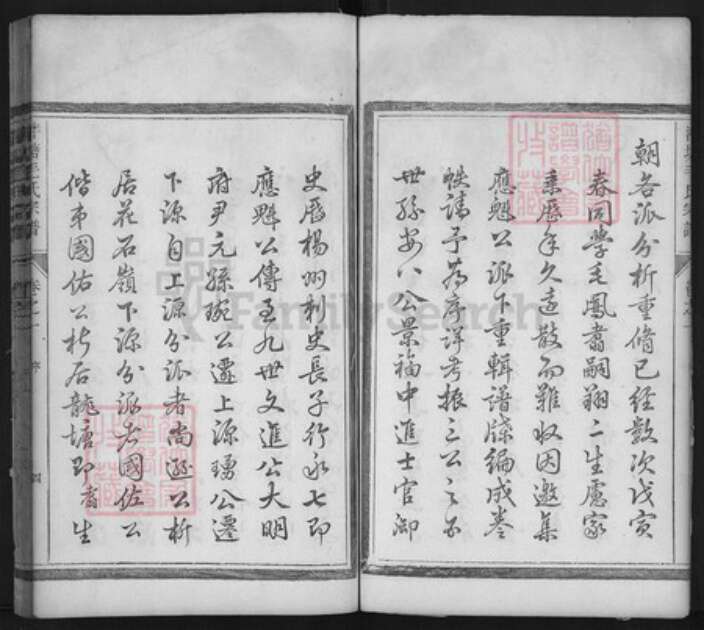 朝各派分析重脩已經數次戊寅
春同學毛鳳翥嗣翔二生慮家
乘歷年久遠散而難收因邀集
應魁公派下重輯譜牒編成卷
帙請予為序詳考振三公之
世孫安八公景福中進士官御
史歷楊州刺史長子行永七即
應魁公傳至九世文進公大明
府尹元孫琬公遷上源瑪公遷
下源自上源分派者尚遜公析
居花石嶺下源分派者國佐公
偕弟國佑公析居龍塘即翥生
毛氏宗譜
卷之一 序
FamilySearch